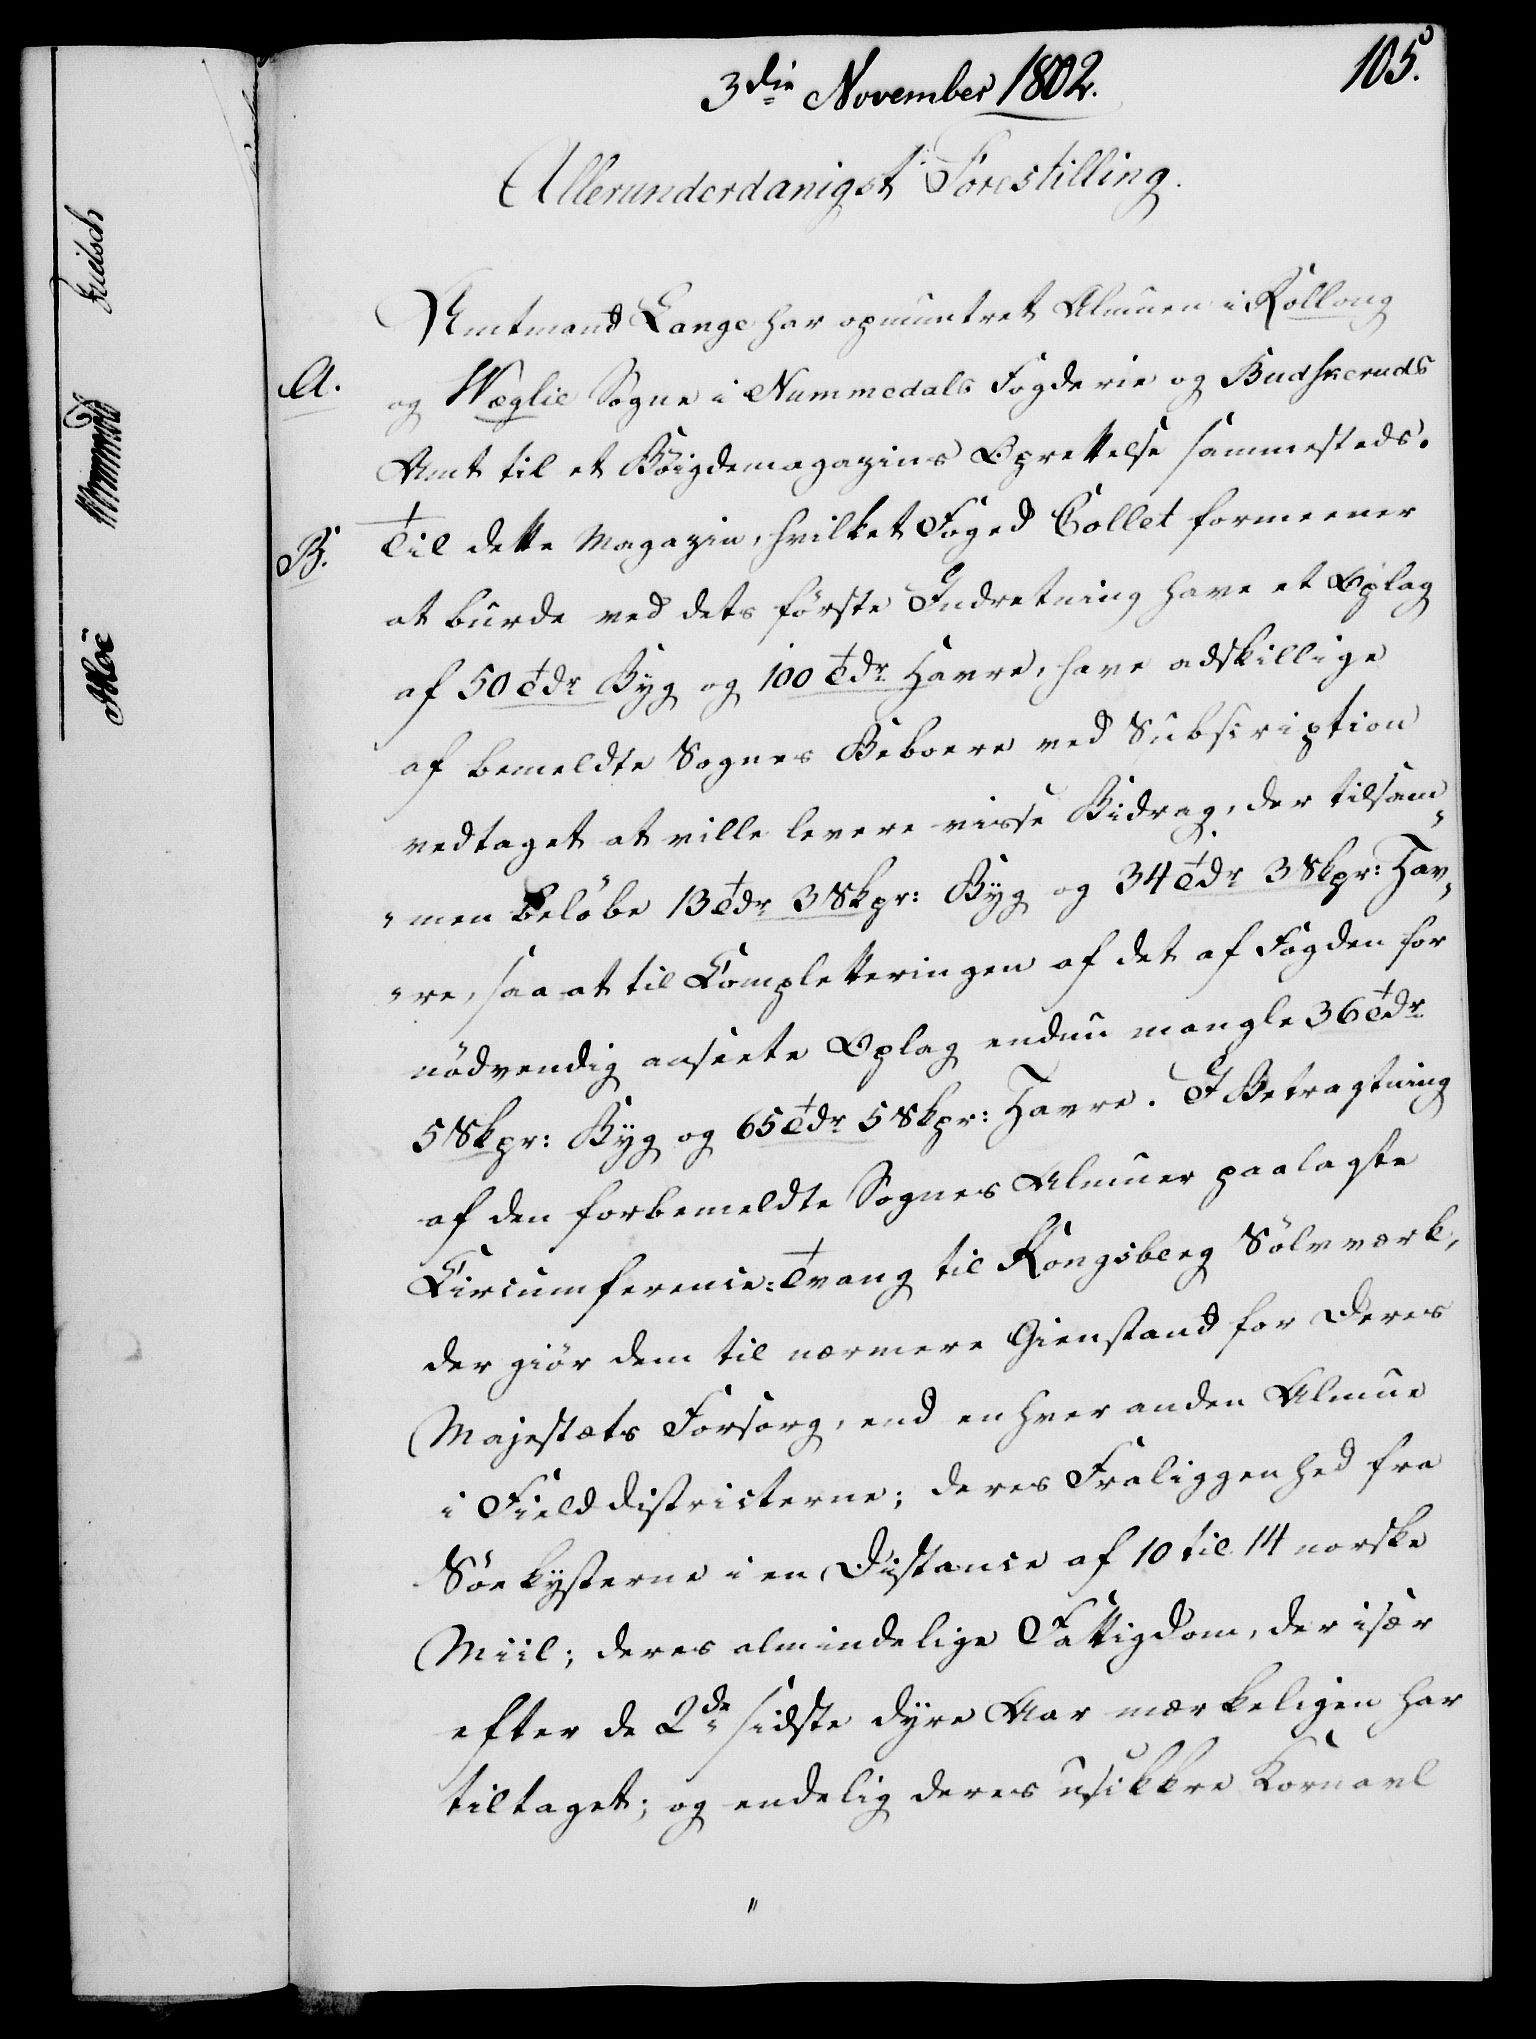 3die November 1802.
105.
Allerunderdanigst Forestilling.
Amtmand Lange har opmuntret Almuen i Rolloug
A.
og Wæglie Sogne i Nummedals Fogderie og Budskeruds
Amt til et Böigdemagazins Oprettelse sammesteds.
B.
Til dette Magazin, hvilket Foged Collet formeener
at burde ved dets förste Indretning have et Oplag
af 50 Tdr Byg og 100 Tdr Havre, have adskillige
af bemeldte Sognes Beboere ved Subscription
vedtaget at ville levere visse Bidrag, der tilsam„
„men beløbe 13 Tdr 3 Skpr: Byg og 34 Tdr 3 Skpr: Hav„
„re, saa at til Completteringen af det af Fogden for
nödvendig ansete Oplag endnu mangle 36 Tdr
5 Skpr: Byg og 65 Tdr 5 Skpr: Havre. I Betragtning
af den forbemeldte Sognes Almuer paalagte
Circumference-Tvang til Kongsberg Sölvværk,
der giör dem til nærmere Gienstand for Deres
Majestæts Forsorg, end enhver anden Almue
i Fielddistricterne; deres Fraliggenhed fra
Söekysterne i en Distance af 10 til 14 norske
Miil; deres almindelige Fattigdom, der især
efter de 2de sidste dyre Aar mærkeligen har
tiltaget; og endelig deres usikkre Kornavl
"
Moe
Fritsch